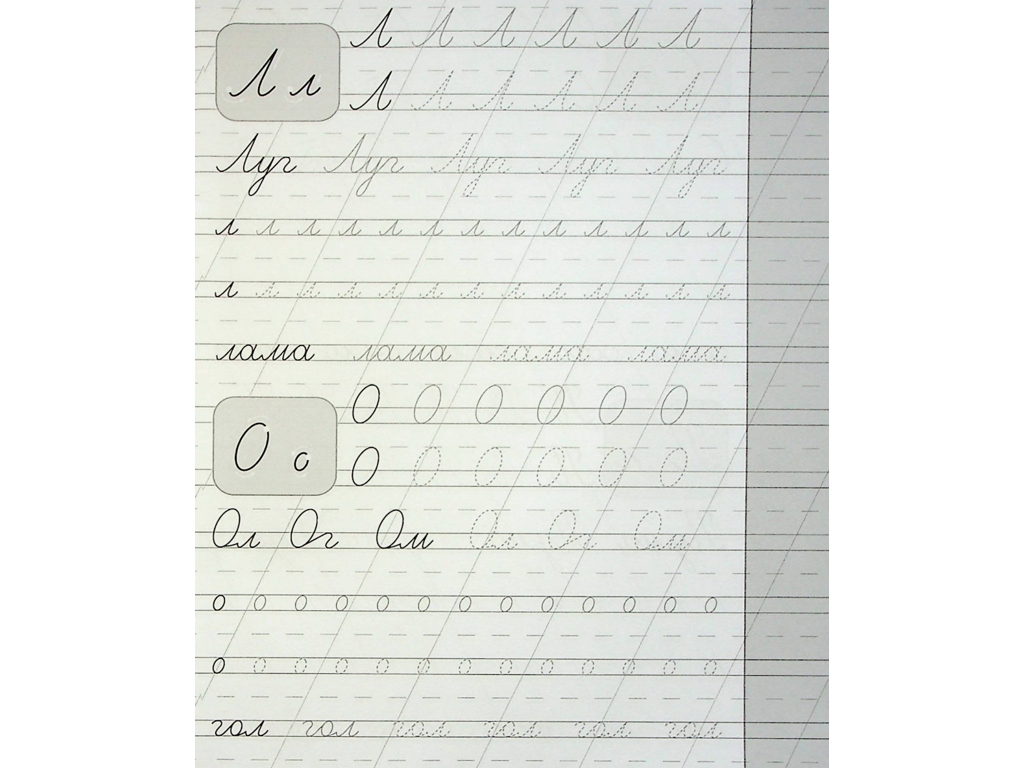 Л л
Л Л Л Л Л Л
Л Л Л Л Л Л
Луг Луг Луг Луг Луг
л л л л л л л л л л л л л
л л л л л л л л л л л л л
лама лама лама лама
О о
О О О О О О
О О О О О О
Ол Ог Ом Ол Ог Ом
о о о о о о о о о о о о о
о о о о о о о о о о о о о
гол гол гол гол гол гол